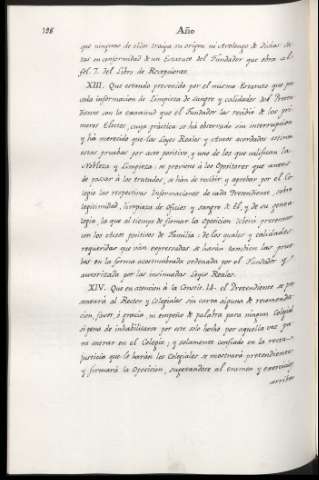 126 Año
que ninguno de ellos traiga su origen ni Avolengo de dichas
tas en conformidad de un Estatuto del Fundador que obra al
fol. 7. del Libro de Recepciones.
XIII. Que estando prevenido por el mismo Estatuto que por
cada informacion de Limpieza de sangre y calidades del Preten
diente con la examinó que el Fundador las recibió de los pri
meros Electos, cuya práctica se há observado sin interrupcion
y há merecido que las Leyes Reales y Autos acordados estimen
estas pruebas por acto positivo, y uno de los que califican la
Nobleza y Limpieza; se previene á los Opositores que antes
de pasar á los tratados, se hán de recibir y aprobar por el Co
legio las respectivas Informaciones de cada Pretendiente, sobre
legitimidad, limpieza de oficios y sangre de El, y de su genea
logia, la que al tiempo de firmar la Oposicion deberá presentar
con los Actos positivos de Familia: de las quales y calidades
requeridas que ván expresadas se harán tambien las prue
bas en la forma acostumbrada ordenada por el Fundador y
autorizada por las insinuadas Leyes Reales.
XIV. Que en atencion á la Constit. 14. el Pretendiente se pre
sentará al Rector y Colegiales sin carta alguna de recomenda
cion, favor, ó gracia, ni empeño de palabra para ningun Colegial
so pena de inhabilitarse por este solo hecho por aquella vez pa
ra entrar en el Colegio; y solamente confiado en la recta
justicia que le harán los Colegiales se mostrará pretendiente
y firmará la Oposicion, sugetandose al examen y exercicios
arriba